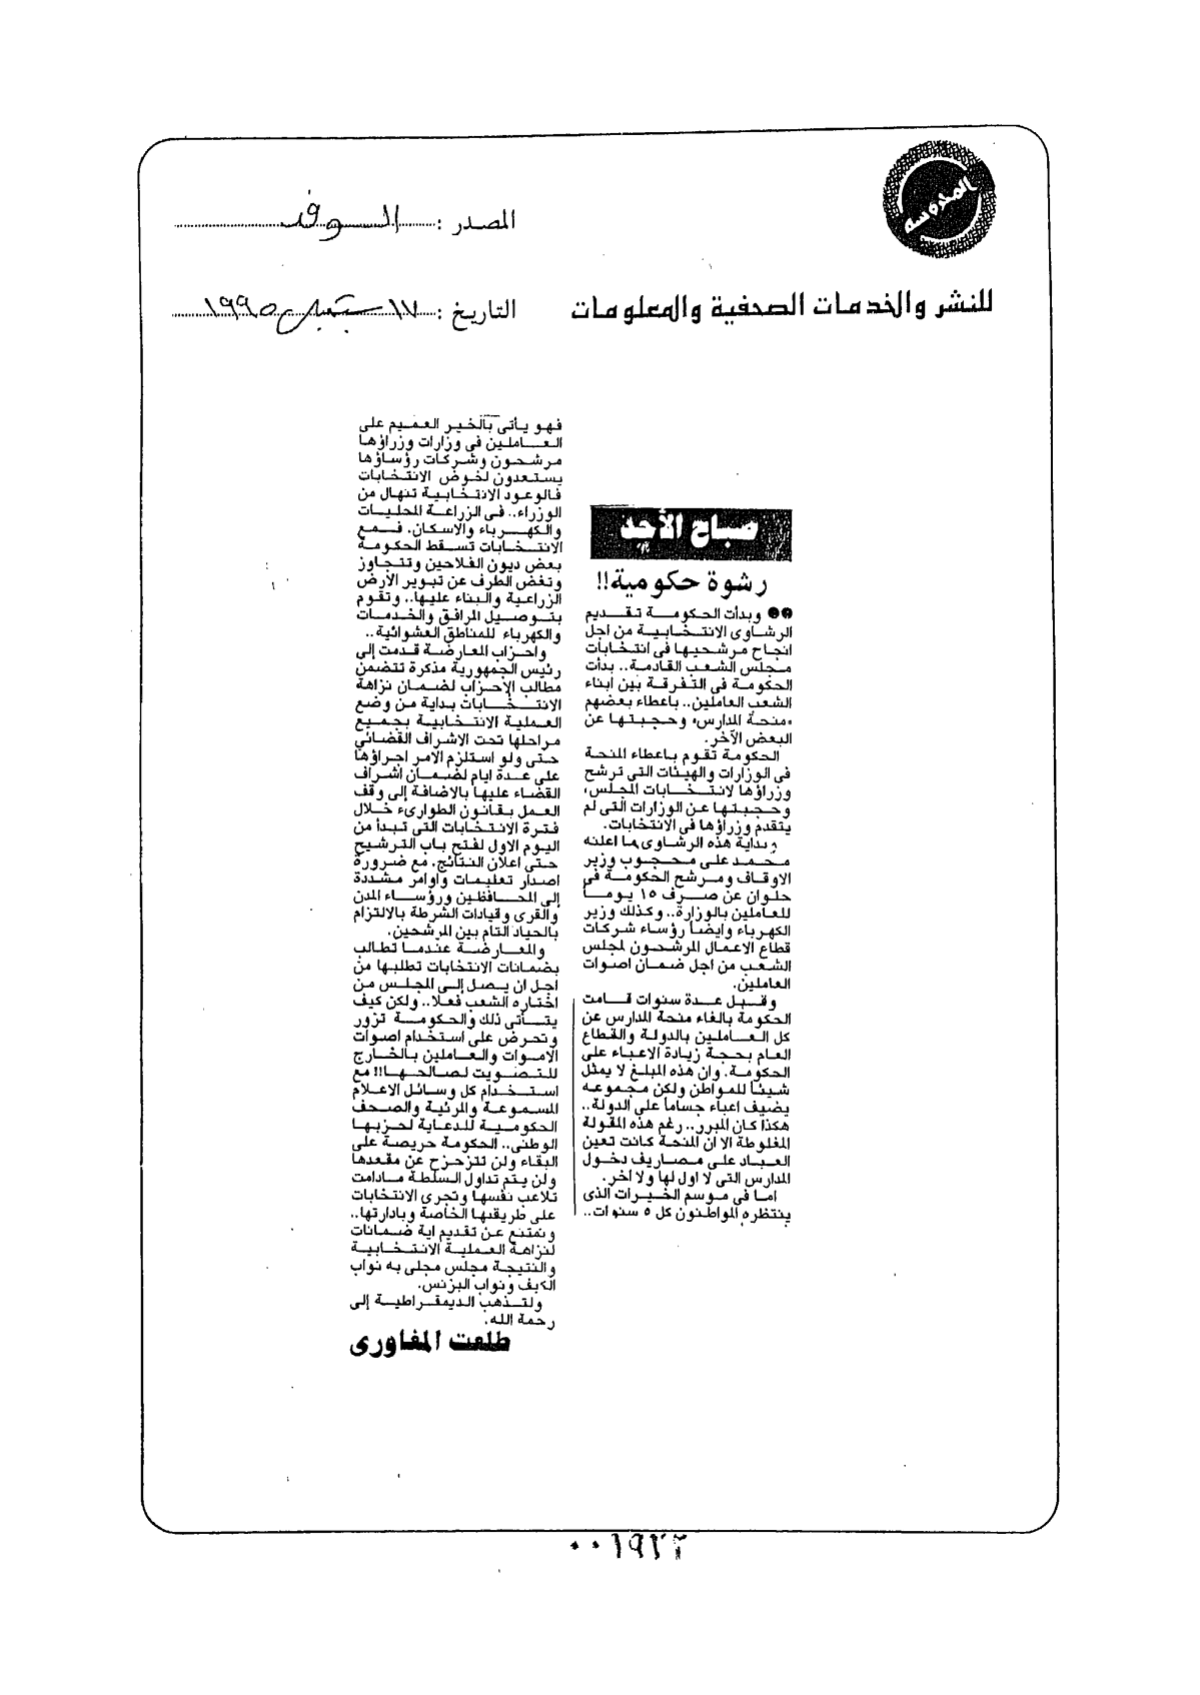 المحروسة
المصدر : الوفد
للنشر والخدمات الصحفية والمعلومات
التاريخ : ١٧ سبتمبر ١٩٩٥
صباح الأحد
رشوة حكومية!!
وبدأت الحكومة تقديم
الرشاوى الانتخابية من اجل
انجاح مرشحيها فى انتخابات
مجلس الشعب القادمة.. بدأت
الحكومة فى التفرقة بين ابناء
الشعب العاملين.. باعطاء بعضهم
«منحة المدارس» وحجبتها عن
البعض الآخر.
الحكومة تقوم باعطاء المنحة
فى الوزارات والهيئات التى ترشح
وزراؤها لانتخابات المجلس،
وحجبتها عن الوزارات التى لم
يتقدم وزراؤها فى الانتخابات.
وبداية هذه الرشاوى ما اعلنه
محمد على محجوب وزير
الاوقاف ومرشح الحكومة فى
حلوان عن صرف ١٥ يوما
للعاملين بالوزارة.. وكذلك وزير
الكهرباء وايضا رؤساء شركات
قطاع الاعمال المرشحون لمجلس
الشعب من اجل ضمان اصوات
العاملين.
وقبل عدة سنوات قامت
الحكومة بالغاء منحة المدارس عن
كل العاملين بالدولة والقطاع
العام بحجة زيادة الاعباء على
الحكومة. وان هذه المبلغ لا يمثل
شيئا للمواطن ولكن مجموعه
يضيف اعباء جساما على الدولة..
هكذا كان المبرر.. رغم هذه المقولة
المغلوطة الا ان المنحة كانت تعين
العباد على مصاريف دخول
المدارس التى لا اول لها ولا آخر.
اما فى موسم الخيرات الذى
ينتظره المواطنون كل ٥ سنوات..
فهو يأتى بالخير العميم على
العاملين فى وزارات وزراؤها
مرشحون وشركات رؤساؤها
يستعدون لخوض الانتخابات
فالوعود الانتخابية تنهال من
الوزراء.. فى الزراعة المحليات
والكهرباء والاسكان. فمع
الانتخابات تسقط الحكومة
بعض ديون الفلاحين وتتجاوز
وتغض الطرف عن تبوير الأرض
الزراعية والبناء عليها.. وتقوم
بتوصيل المرافق والخدمات
والكهرباء للمناطق العشوائية..
واحزاب المعارضة قدمت إلى
رئيس الجمهورية مذكرة تتضمن
مطالب الاحزاب لضمان نزاهة
الانتخابات بداية من وضع
العملية الانتخابية بجميع
مراحلها تحت الاشراف القضائي
حتى ولو استلزم الامر اجراؤها
على عدة ايام لضمان اشراف
القضاء عليها بالاضافة إلى وقف
العمل بقانون الطوارىء خلال
فترة الانتخابات التى تبدأ من
اليوم الاول لفتح باب الترشيح
حتى اعلان النتائج. مع ضرورة
اصدار تعليمات وأوامر مشددة
إلى المحافظين ورؤساء المدن
والقرى وقيادات الشرطة بالالتزام
بالحياد التام بين المرشحين.
والمعارضة عندما تطالب
بضمانات الانتخابات تطلبها من
اجل ان يصل إلى المجلس من
اختاره الشعب فعلا.. ولكن كيف
يتأتى ذلك والحكومة تزور
وتحرض على استخدام اصوات
الاموات والعاملين بالخارج
للتصويت لصالحها!! مع
استخدام كل وسائل الاعلام
المسموعة والمرئية والصحف
الحكومية للدعاية لحزبها
الوطنى.. الحكومة حريصة على
البقاء ولن تتزحزح عن مقعدها
ولن يتم تداول السلطة مادامت
تلاعب نفسها وتجرى الانتخابات
على طريقتها الخاصة وبادارتها..
وتمتنع عن تقديم اية ضمانات
لنزاهة العملية الانتخابية
والنتيجة مجلس مجلى به نواب
الكيف ونواب البزنس.
ولتذهب الديمقراطية إلى
رحمة الله.
طلعت المغاورى